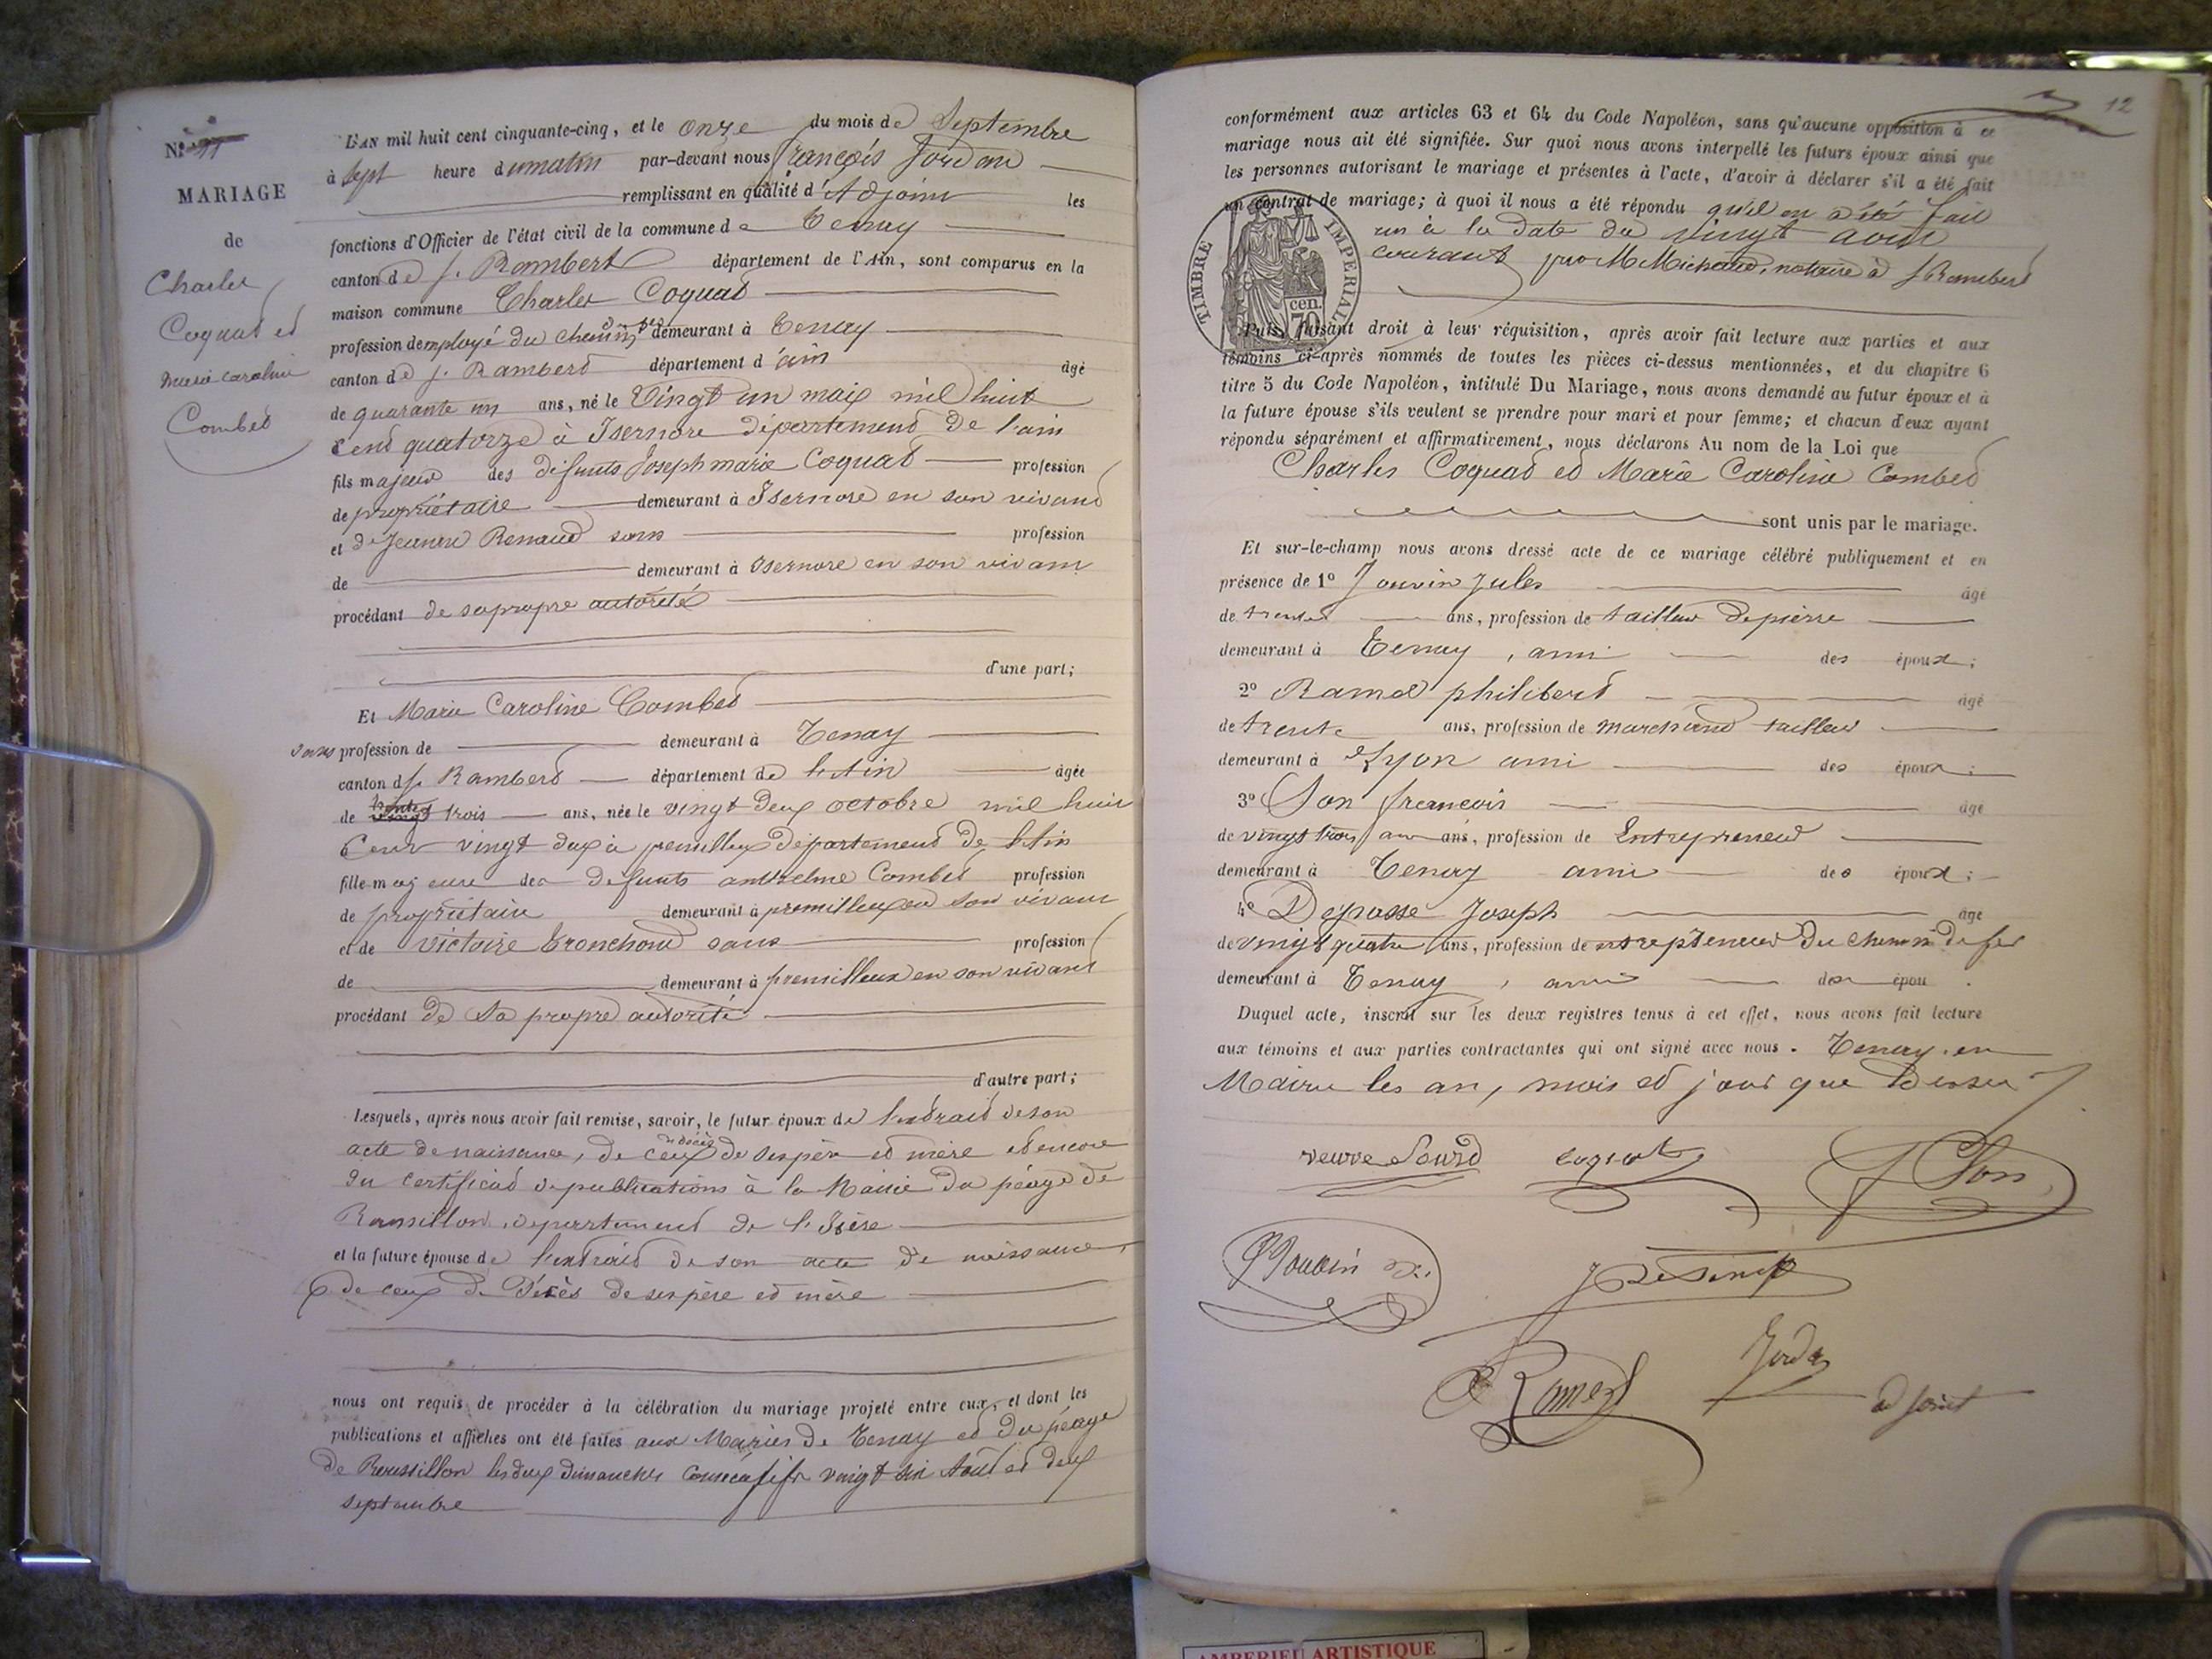 N° 11
MARIAGE
de
Charles
Coquat et
marie caroline
Combet
L'AN mil huit cent cinquante-cinq, et le onze du mois de Septembre
à sept heure du matin par-devant nous françois Jordan
remplissant en qualité d'Adjoint les
fonctions d'Officier de l'état civil de la commune de Tenay
canton de St. Rambert département de l'Ain, sont comparus en la
maison commune Charles Coquat
profession d'employé du chemin de demeurant à Tenay
canton de St. Rambert département d'ain âgé
de quarante un ans, né le Vingt un mai mil huit
cent quatorze à Isernore département de l'ain
fils majeur des défunts Joseph marie Coquat profession
de propriétaire demeurant à Isernore en son vivant
et de Jeanne Renaud sans profession
de demeurant à Isernore en son vivant
procédant de sa propre autorité
d'une part;
Et Marie Caroline Combet
sans profession de demeurant à Tenay
canton de St. Rambert département de l'Ain âgée
de trente trois ans, née le vingt deux octobre mil huit
Cent vingt deux à premillieux département de l'Ain
fille majeure des défunts anthelme Combet profession
de propriétaire demeurant à premillieux en son vivant
et de victoire tronchond sans profession
de demeurant à premillieux en son vivant
procédant de sa propre autorité
d'autre part;
Lesquels, après nous avoir fait remise, savoir, le futur époux de l'extrait de son
acte de naissance, de ceux de décès de ses père et mère et encore
du certificat de publications à la Mairie du péage de
Roussillon, département de l'Isère
et la future épouse de l'extrait de son acte de naissance,
de ceux de Décès de ses père et mère
nous ont requis de procéder à la célébration du mariage projeté entre eux, et dont les
publications et affiches ont été faites aux Mairies de Tenay et du péage
de Roussillon les deux dimanches consécutifs vingt six Août et deux
septembre
12
conformément aux articles 63 et 64 du Code Napoléon, sans qu'aucune opposition à ce
mariage nous ait été signifiée. Sur quoi nous avons interpellé les futurs époux ainsi que
les personnes autorisant le mariage et présentes à l'acte, d'avoir à déclarer s'il a été fait
un contrat de mariage; à quoi il nous a été répondu qu'il en a été fait
un à la date du vingt août
courant par M Michaud, notaire à St Rambert
TIMBRE IMPERIAL
70 cen.
Puis, faisant droit à leur réquisition, après avoir fait lecture aux parties et aux
témoins ci-après nommés de toutes les pièces ci-dessus mentionnées, et du chapitre 6
titre 5 du Code Napoléon, intitulé Du Mariage, nous avons demandé au futur époux et à
la future épouse s'ils veulent se prendre pour mari et pour femme; et chacun d'eux ayant
répondu séparément et affirmativement, nous déclarons Au nom de la Loi que
Charles Coquat et Marie Caroline Combet
sont unis par le mariage.
Et sur-le-champ nous avons dressé acte de ce mariage célébré publiquement et en
présence de 1° Jouvin Jules âgé
de trente ans, profession de tailleur de pierre
demeurant à Tenay, ami des époux;
2° Ramel philibert âgé
de trente ans, profession de marchand tailleur
demeurant à Lyon ami des époux;
3° Son françois âgé
de vingt trois ans ans, profession de Entrepreneur
demeurant à Tenay ami des époux;
4° Joseph âgé
de vingt quatre ans, profession de entrepreneur du chemin de fer
demeurant à Tenay, ami des époux.
Duquel acte, inscrit sur les deux registres tenus à cet effet, nous avons fait lecture
aux témoins et aux parties contractantes qui ont signé avec nous. Tenay, en
Mairie les an, mois et jour que Dessus
veuve Sourd coquat F Son
J Jouvin
Ramel Jordan adjoint
AMBERIEU ARTISTIQUE